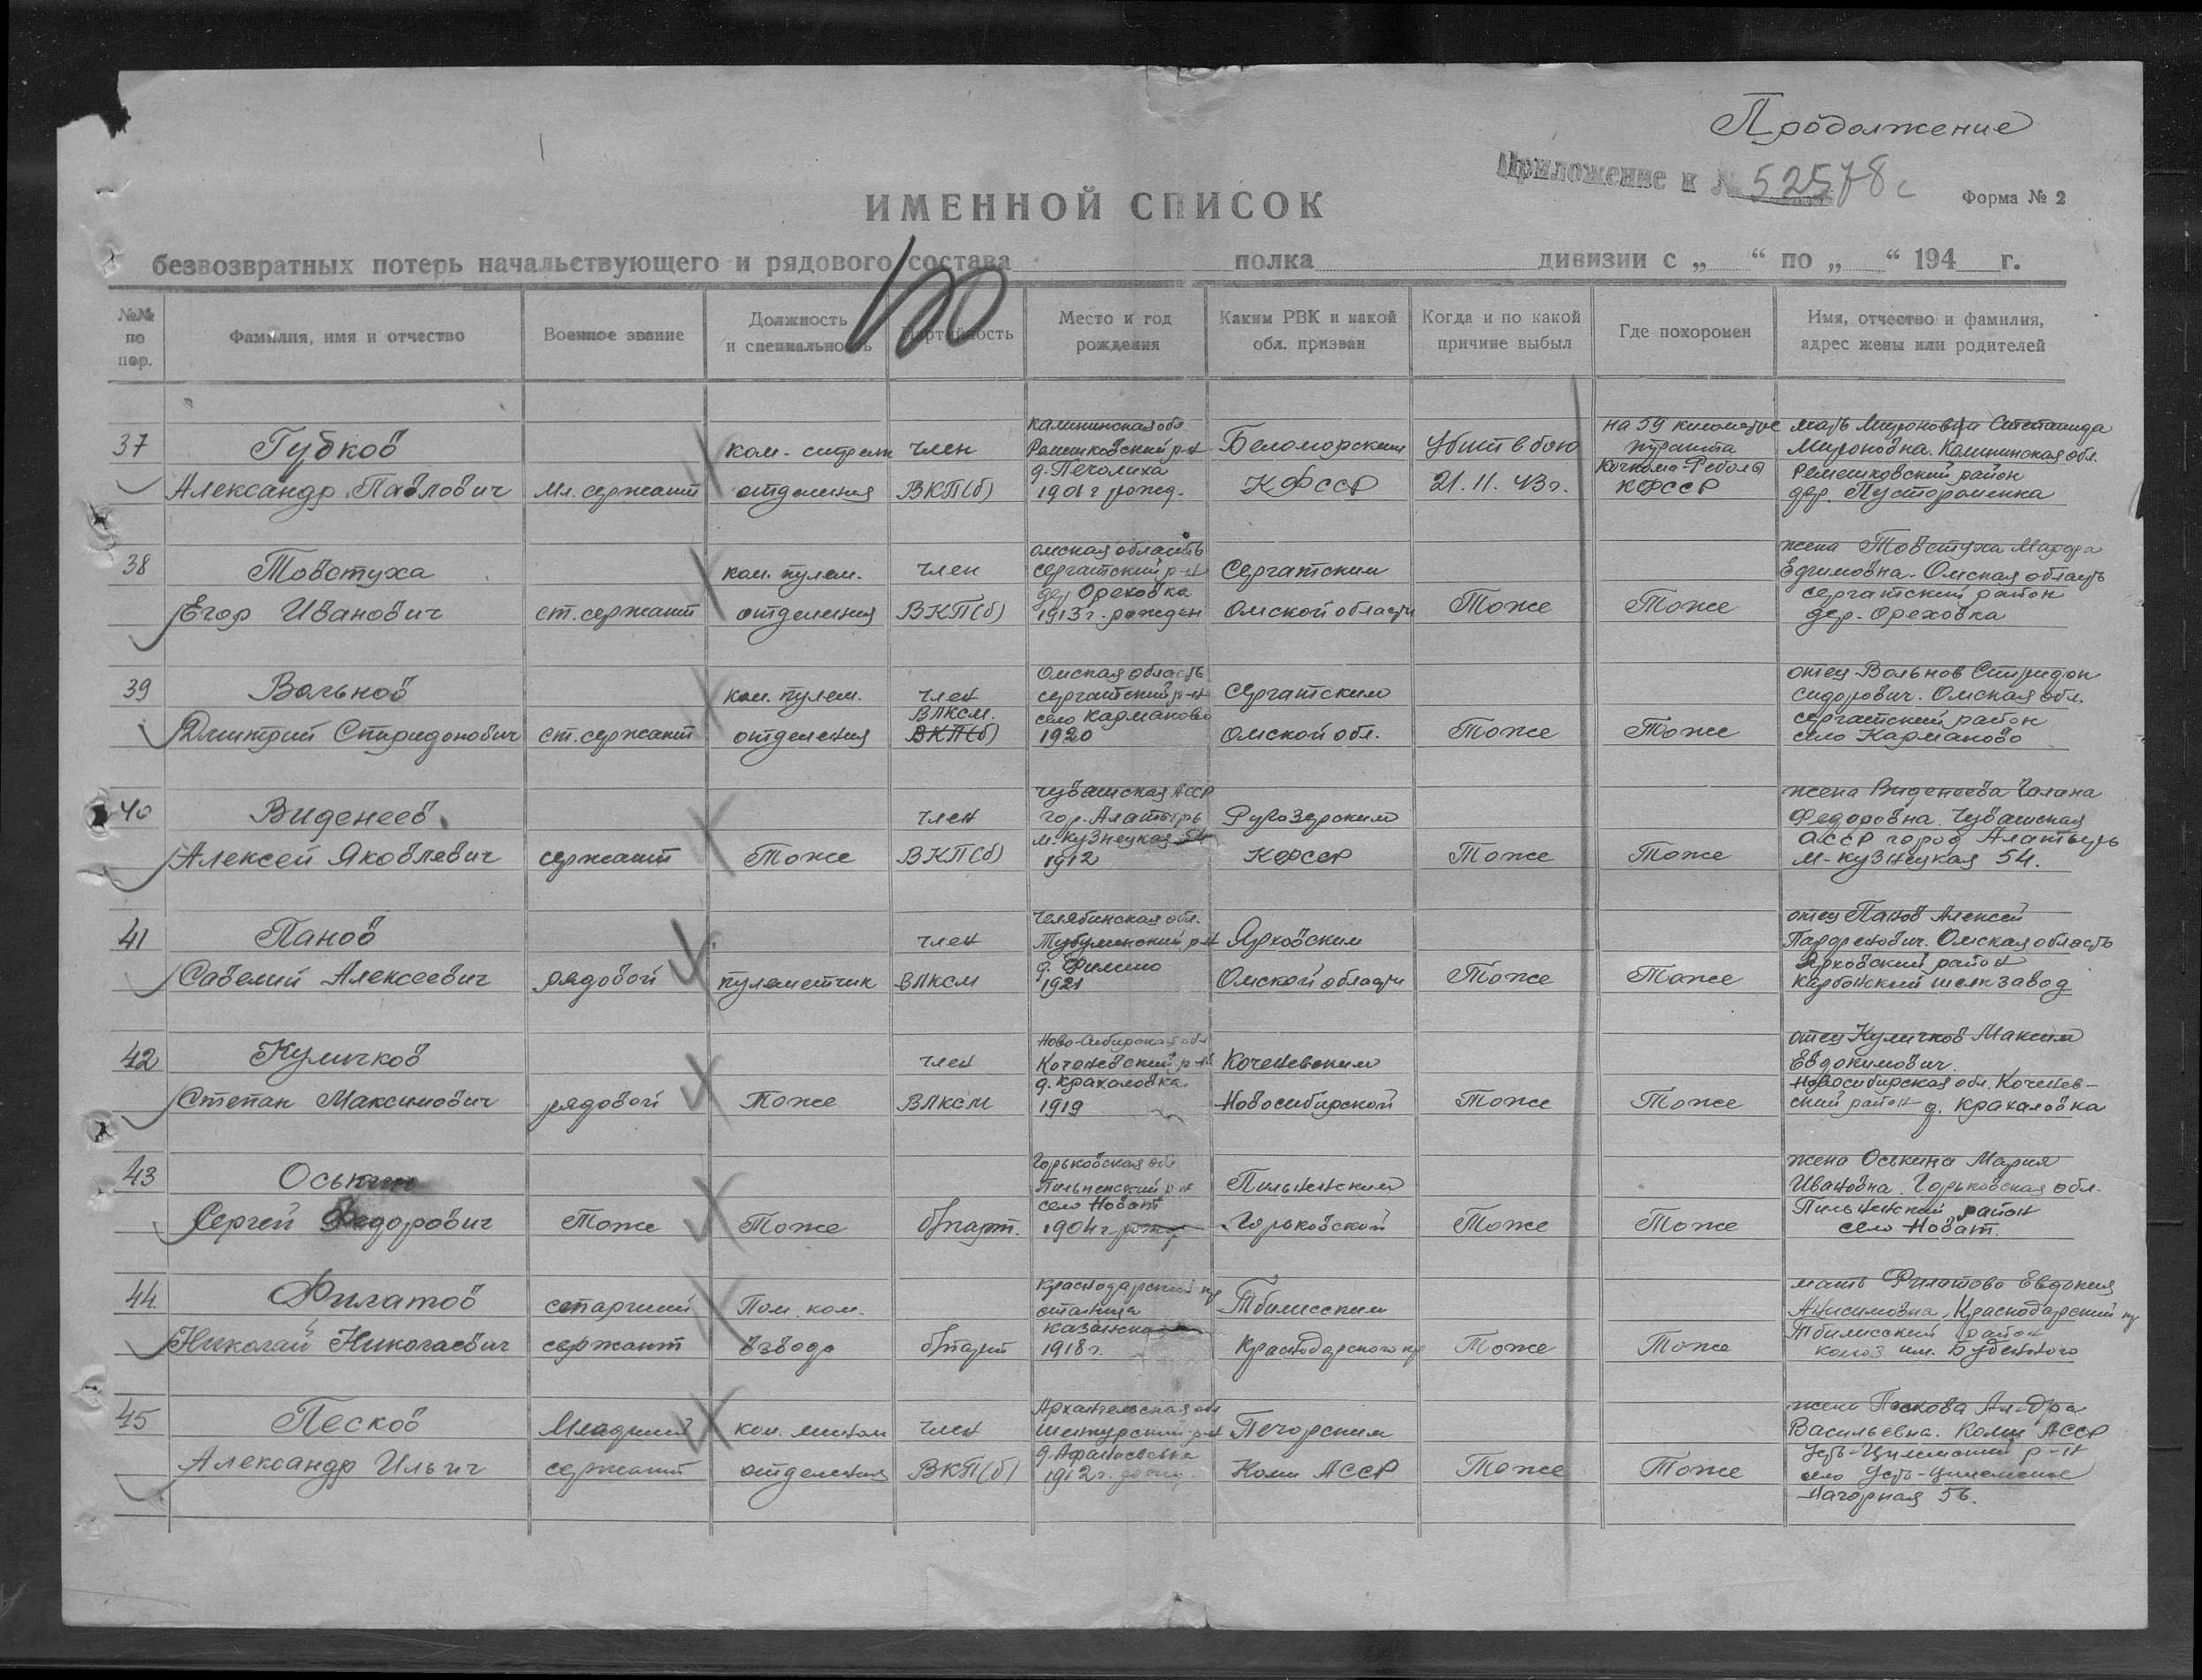 Продолжение
Приложение к № 52578с
Форма № 2
ИМЕННОЙ СПИСОК
безвозвратных потерь начальствующего и рядового состава полка дивизии с „ “ по „ “ 194 г.
№№ по пор.
Фамилия, имя и отчество
Военное звание
Должность и специальность
Партийность
Место и год рождения
Каким РВК и какой обл. призван
Когда и по какой причине выбыл
Где похоронен
Имя, отчество и фамилия, адрес жены или родителей
37
Губков
Александр Павлович
Мл. сержант
ком. отделения
член
ВКП(б)
Калининская обл.
Рамешковский р-н
д. Печалиха
1901 г рожд.
Беломорским
КФССР
Убит в бою
21.11.43 г.
на 59 километре
тракта
Кочкома-Реболы
КФССР
мать Степанида
Мироновна. Калининская обл.
Рамешковский район
дер.
38
Товстуха
Егор Иванович
ст. сержант
ком. пулем.
отделения
член
ВКП(б)
омская область
сергатский р-н
дер Ореховка
1913 г. рожден
Сергатским
Омской области
Тоже
Тоже
жена Товстуха
Ефимовна. Омская область
сергатский район
дер. Ореховка
39
Вольнов
Дмитрий Спиридонович
ст. сержант
ком. пулем.
отделения
член
ВЛКСМ.
ВКП(б)
Омская область
сергатский р-н
село Карманово
1920
Сергатским
Омской обл.
Тоже
Тоже
отец Вольнов Спиридон
Сидорович. Омская обл.
сергатский район
село Карманово
40
Виденеев
Алексей Яковлевич
сержант
Тоже
член
ВКП(б)
Чувашская АССР
гор. Алатырь
м-кузнецкая 54
1912
Ругозерским
КФССР
Тоже
Тоже
жена Виденеева
Федоровна. Чувашская
АССР город Алатырь
м-кузнецкая 54.
41
Панов
Савелий Алексеевич
рядовой
пулеметчик
член
ВЛКСМ
Челябинская обл.
д.
1921
Ярковским
Омской области
Тоже
Тоже
отец Панов Алексей
Омская область
Ярковский район
завод
42
Куличков
Степан Максимович
рядовой
Тоже
член
ВЛКСМ
Ново-Сибирская обл
Коченевский р-н
д. Крахаловка
1919
Коченевским
Новосибирской
Тоже
Тоже
отец Куличков Максим
Евдокимович.
Новосибирская обл. Коченев-
ский район д. Крахаловка
43
Оськин
Сергей Федорович
Тоже
Тоже
б/парт.
Горьковская обл
Пильненский р-н
село Новат
1904 г. рожд
Пильненским
Горьковской
Тоже
Тоже
жена Оськина Мария
Ивановна. Горьковская обл.
Пильненский район
село Новат.
44
Филатов
Николай Николаевич
старший
сержант
Пом. ком.
взвода
б/парт
Краснодарский кр
станица
Казанская
1918 г.
Тбилисским
Краснодарского кр
Тоже
Тоже
мать Филатова Евдокия
Анисимовна, Краснодарский кр
Тбилисский район
колхоз им. Буденного
45
Песков
Александр Ильич
Младший
сержант
ком. отделения
член
ВКП(б)
Архангельская обл
р-н
д. Афанасьевка
1912 г. рожд.
Печорским
Коми АССР
Тоже
Тоже
жена Пескова Ал-дра
Васильевна. Коми АССР
Усть-Цилемский р-н
село Усть-Цилемское
Нагорная 56.